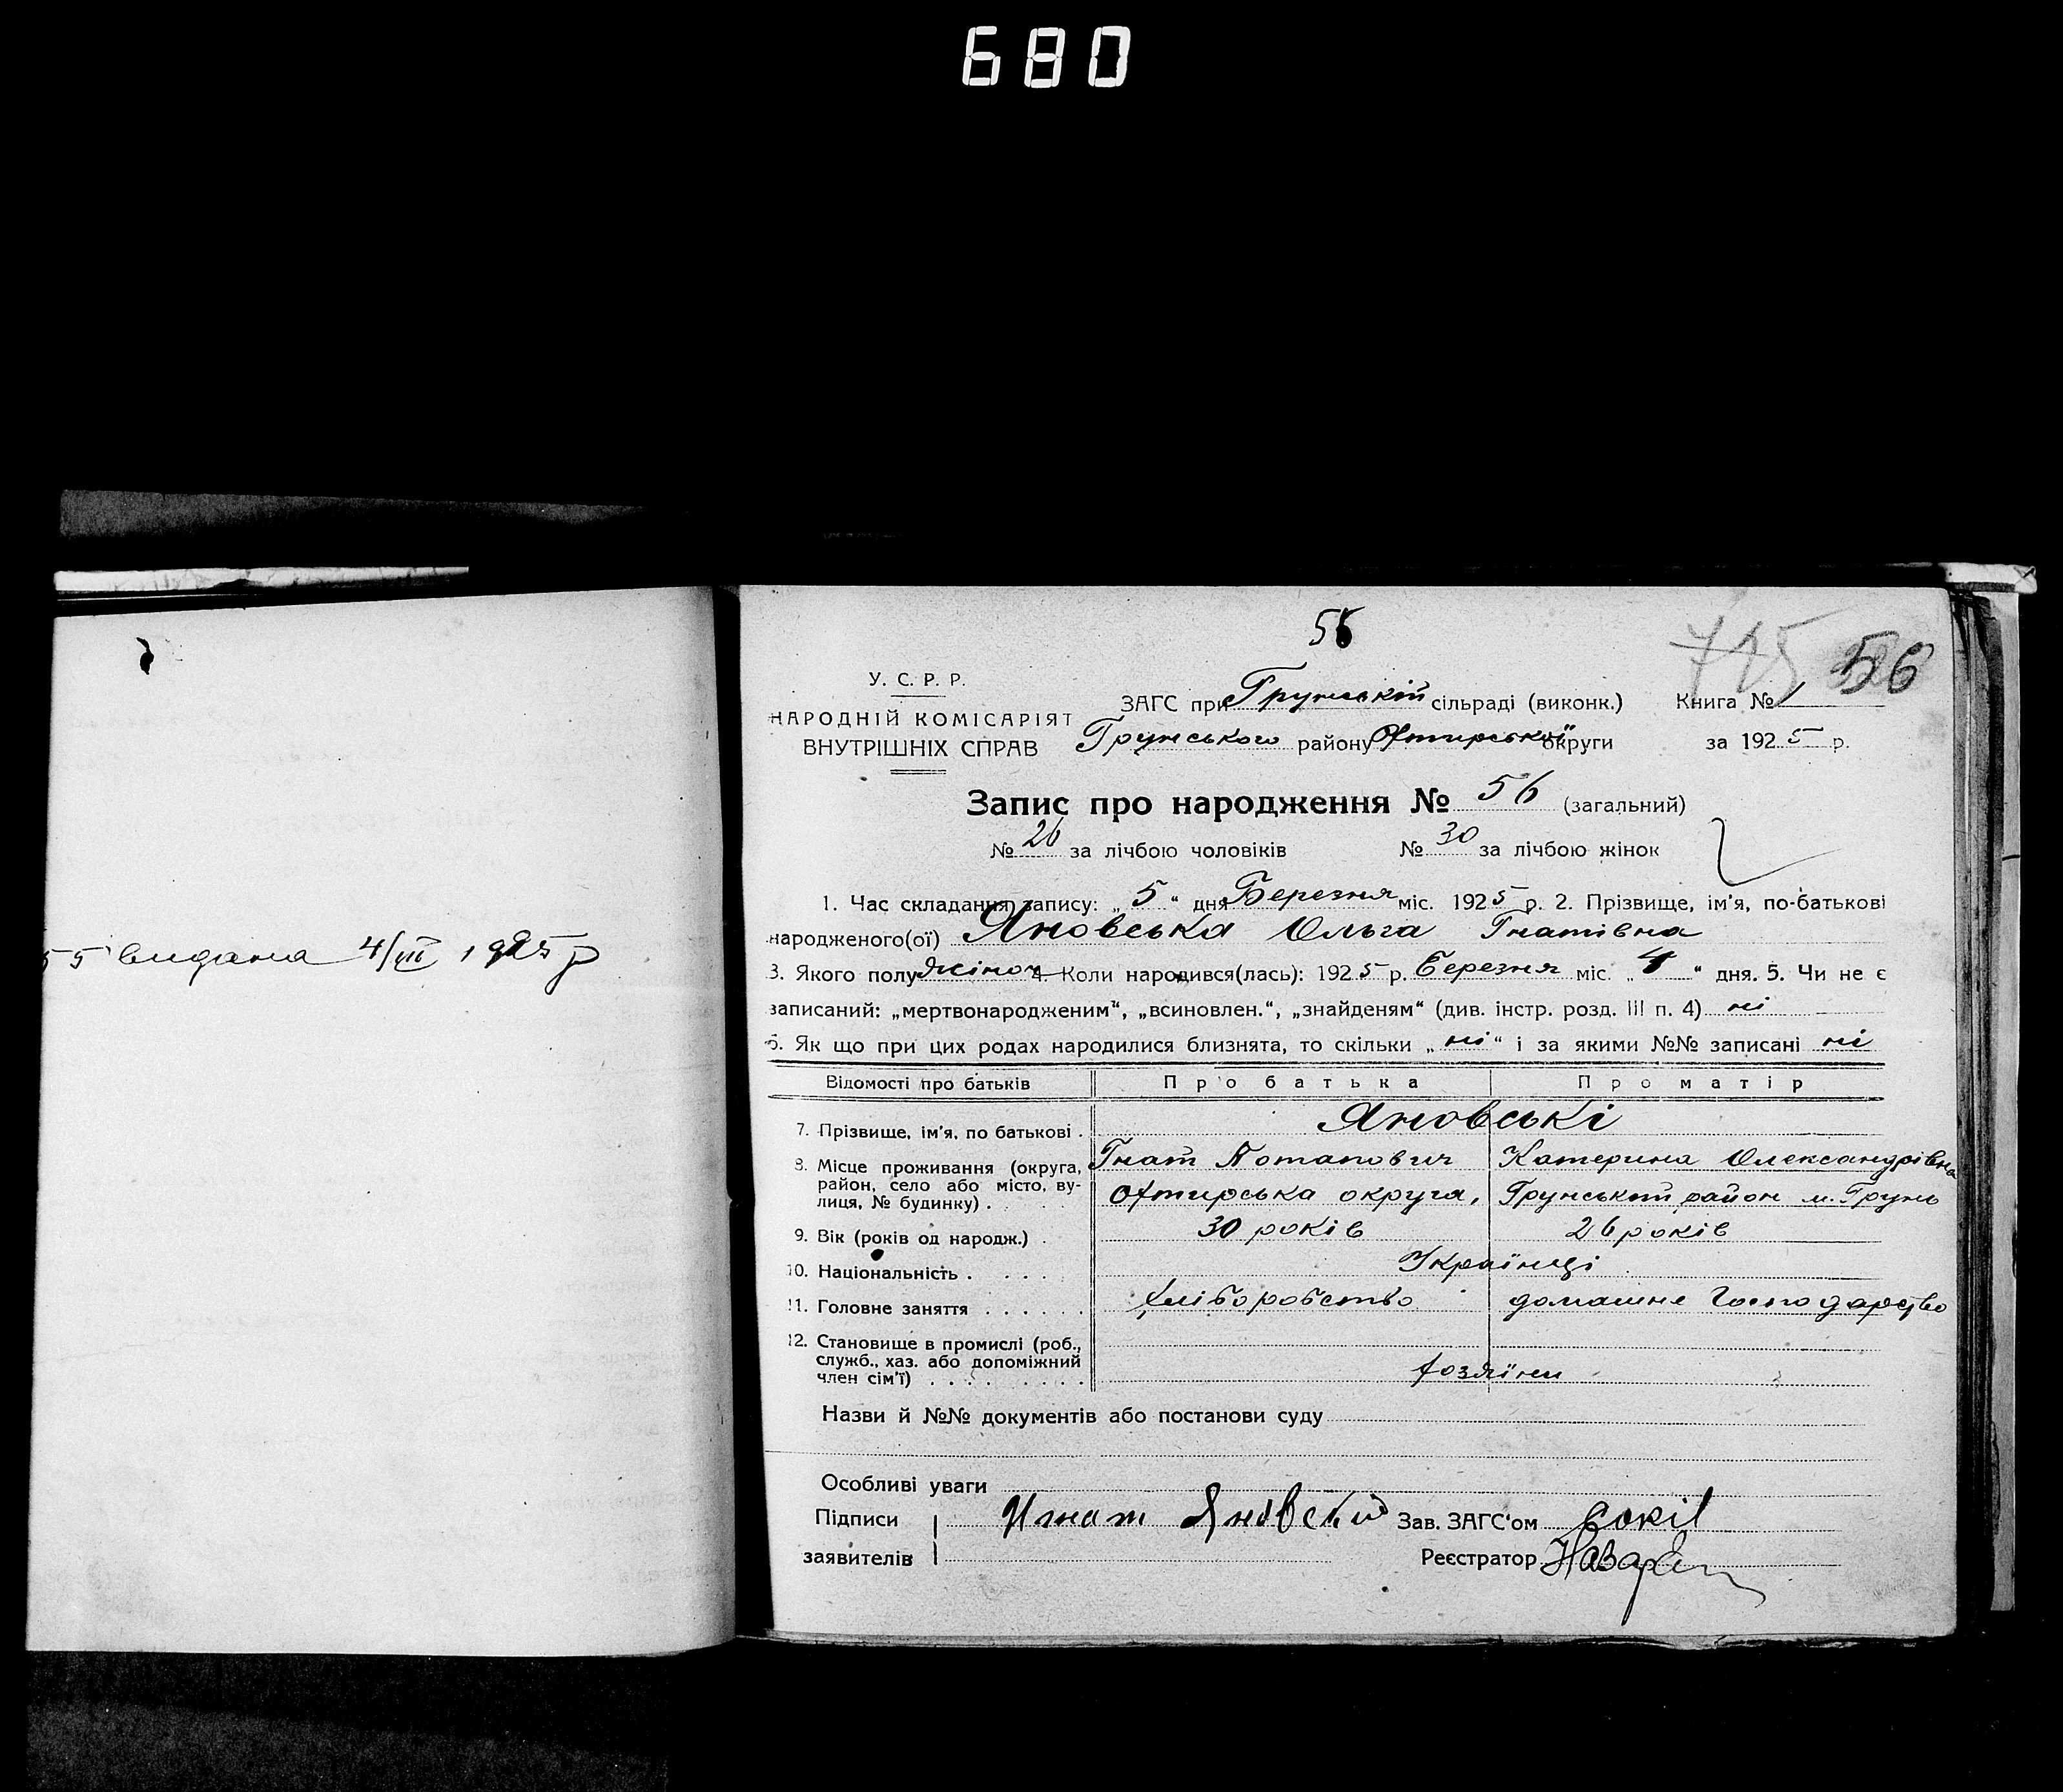 680
55 видана 4/III 1925 р
56
715 56
У. С. Р. Р.
НАРОДНІЙ КОМІСАРІЯТ
ВНУТРІШНІХ СПРАВ
ЗАГС при Грунській сільраді (виконк.) Книга № 1
Грунського району Охтирської округи за 1925 р.
Запис про народження № 56 (загальний)
№ 26 за лічбою чоловіків № 30 за лічбою жінок
1. Час складання запису: „ 5 “ дня Березня міс. 1925 р. 2. Прізвище, ім'я, по-батькові
народженого(ої) Яновська Ольга Гнатівна
3. Якого полу жіноч 4. Коли народився(лась): 1925 р. Березня міс. „ 4 “ дня. 5. Чи не є
записаний: „мертвонародженим“, „всиновлен.“, „знайденям“ (див. інстр. розд. III п. 4) ні
6. Як що при цих родах народилися близнята, то скільки „ ні “ і за якими №№ записані ні
Відомості про батьків Про батька Про матір
Яновські
7. Прізвище, ім'я, по батькові .
Гнат Потапович Катерина Олександрівна
8. Місце проживання (округа,
район, село або місто, ву-
лиця, № будинку) .
Охтирська округа, Грунський район м. Грунь
9. Вік (років од народж.) . 30 років 26 років
10. Національність . . . . Українці
11. Головне заняття . . . . . . хліборобство домашне господарство
12. Становище в промислі (роб.,
служб., хаз. або допоміжний
член сім'ї) . . . . . . . . . хозяїни
Назви й №№ документів або постанови суду
Особливі уваги
Підписи Игнат Яновский Зав. ЗАГС'ом Сокіл
заявителів Реєстратор